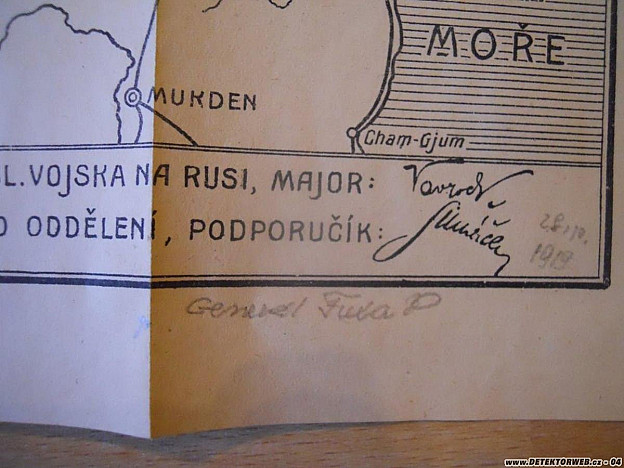 MOŘE
MUKDEN
Cham-Gjum
SL. VOJSKA NA RUSI, MAJOR:
O ODDĚLENÍ, PODPORUČÍK:
28./10.
1919
General
www.DETEKTORWEB.cz - 04